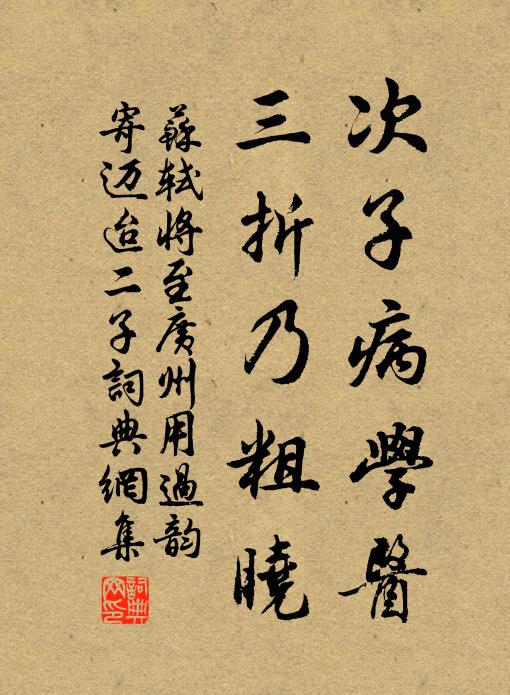 次子病學醫
三折乃粗曉
蘇軾將至廣州用過韵
寄迈迨二子詞典網集
詞典网印